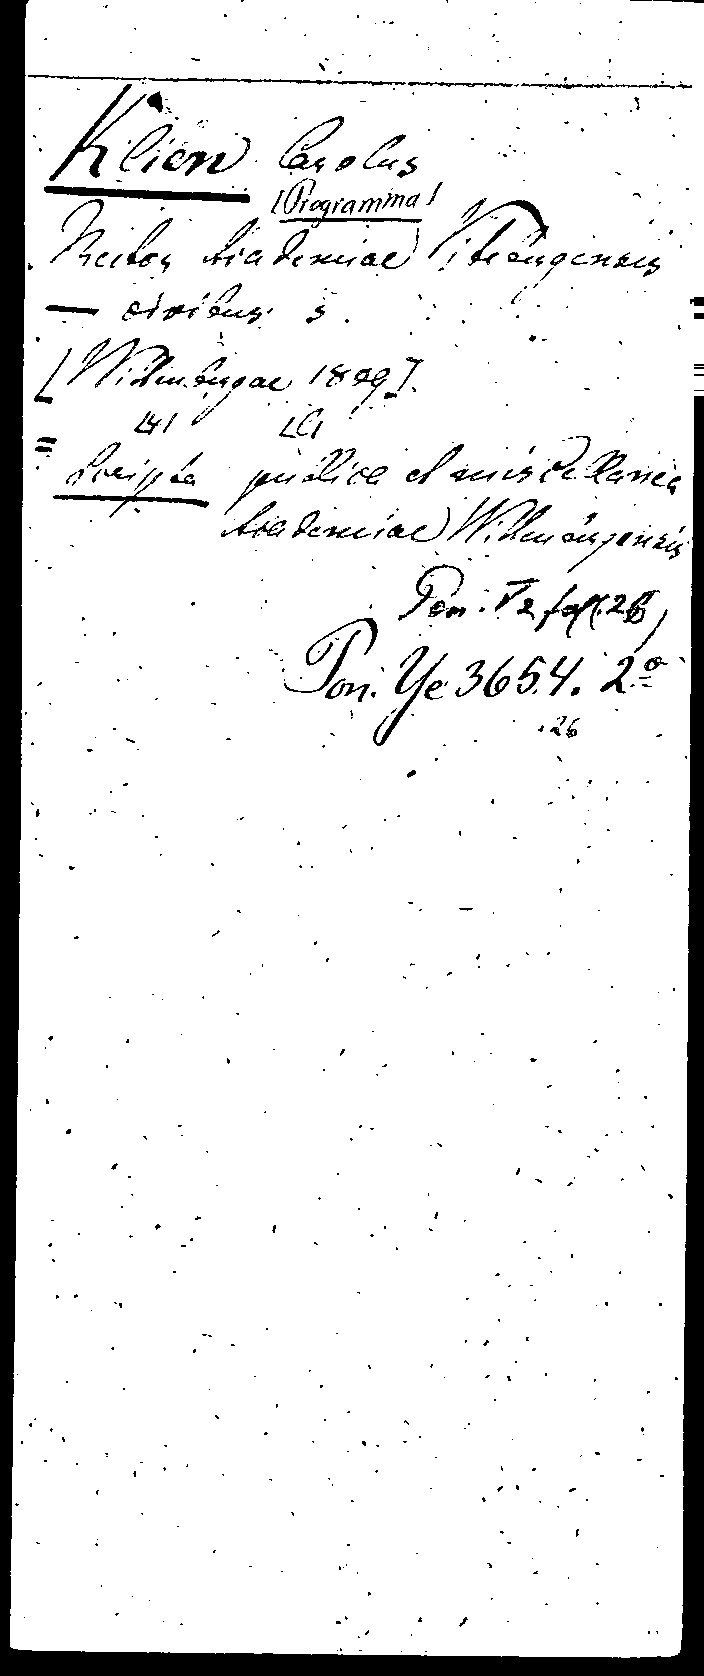 Klien Carolus
[Programma]
Rector Academiae Vitebergensis
— civibus s.
[Wittenbergae 1809].
= Scripta publica et miscellanea
Academiae Wittenbergensis
Pon. Ye 3654. 2°
.26